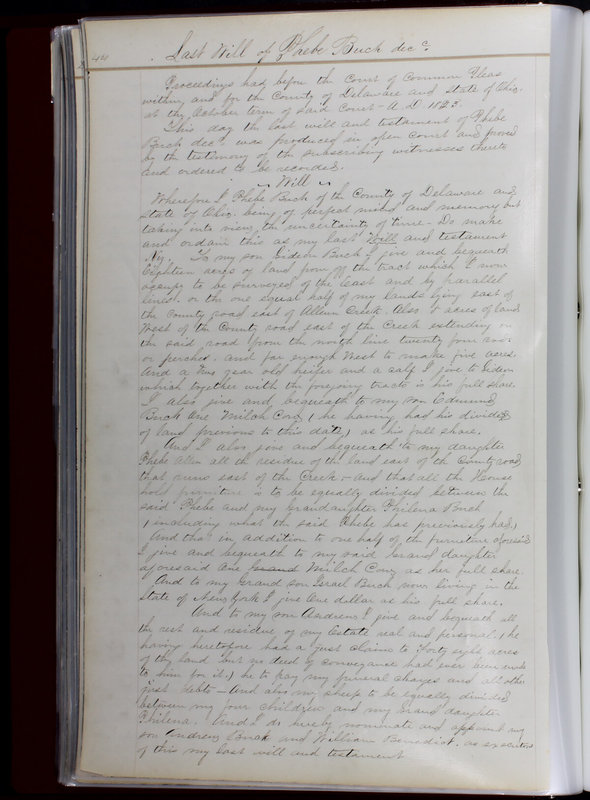 44
Last Will of Phebe Buck decd
Proceedings had before the Court of Common Pleas
within and for the County of Delaware and State of Ohio.
at the October term of said Court - A.D. 1823.
This day the last will and testament of Phebe
Buck decd was produced in open Court and proved
by the testimony of the subscribing witnesses thereto
and ordered to be recorded.
Will
Wherefore I Phebe Buck of the County of Delaware and
State of Ohio. being of perfect mind and memory but
taking into view the uncertainty of time - Do make
and ordain this as my last Will and testament
Viz. To my son Gideon Buck I give and bequeath
Eighteen acres of land from the tract which I now
occupy to be surveyed of the east and by parallel
lines. or the one equal half of my lands lying east of
the County road east of Creek. Also 5 acres of land
West of the County road east of the Creek extending on
the said road from the north line twenty four rods
or perches. and far enough West to make five acres.
And a two year old heifer and a calf I give to Gideon
which together with the foregoing tracts is his full share.
I also give and bequeath to my son Edmund
Buck One Milch Cow, (he having had his divided
of land previous to this date) as his full share.
And I also give and bequeath to my daughter
Phebe all the residue of the land east of the County road
that runs east of the Creek - and that all the House
hold furniture is to be equally divided between the
said Phebe and my Grandaughter Philena Buck
(including what the said Phebe has previously had,)
And that in addition to one half of the furniture aforesaid
I give and bequeath to my said Grand daughter
aforesaid One Milch Cow, as her full share.
And to my Grand son Israel Buck now living in the
State of New York I give One dollar as his full share.
And to my son Andrew I give and bequeath all
the rest and residue of my Estate real and personal. (he
having heretofore had a just claim to Forty eight acres
of the land but no deed of conveyance had ever been made
to him for it,) he to pay my funeral charges and all other
just debts - And also my sheep to be equally divided
between my four children and my Grand daughter
Philena. And I do hereby nominate and appoint my
son Andrew Buck and William Benedict. as executors
of this my last will and testament